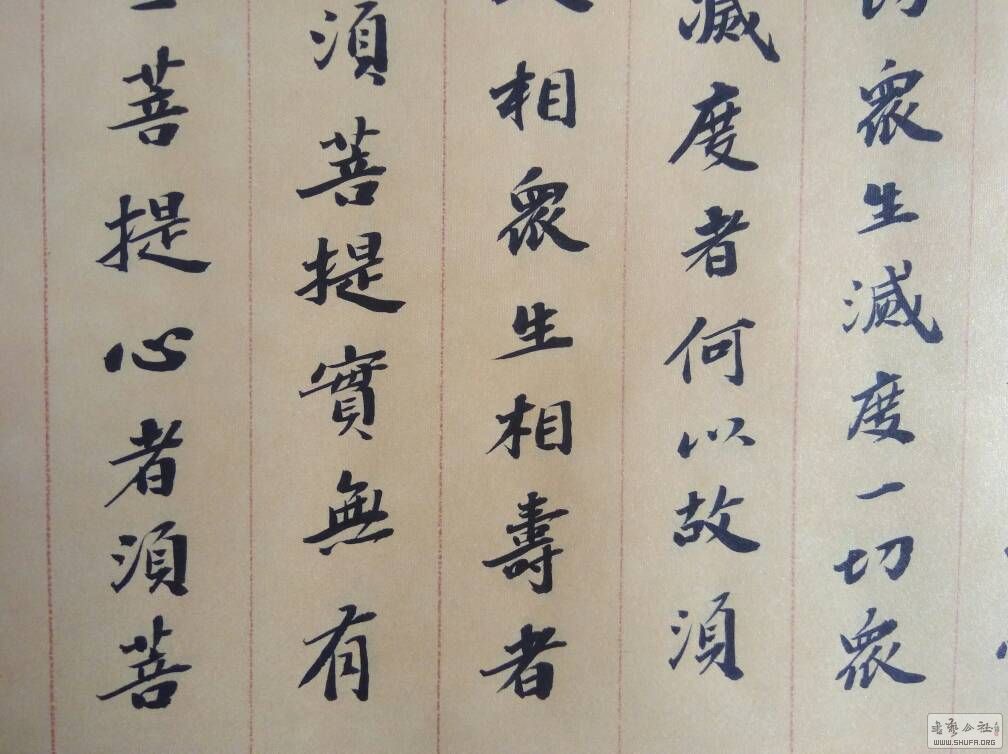 眾生滅度一切眾
滅度者何以故須
相眾生相壽者
須菩提實無有
菩提心者須菩
書藝公社
WWW.SHUFA.ORG